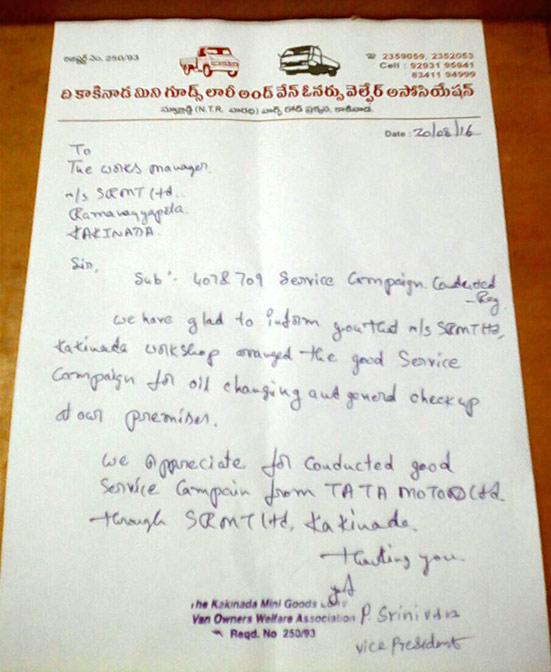 రిజిష్టర్ నెం. 250/93
☎ 2359059, 2352053
Cell : 92931 95941
93411 94999
ది కాకినాడ మిని గూడ్స్ లారీ అండ్ వేన్ ఓనర్సు వెల్ఫేర్ అసోసియేషన్
(N.T.R. వారధి) వార్ఫు రోడ్ ప్రక్కన, కాకినాడ.
Date : 20/08/16
To
The works manager.
m/s SRMT Ltd.
Ramanayyapeta
KAKINADA.
Sir,
Sub :- 407 & 709 Service Campaign Conducted
- Reg
we have glad to inform you that m/s SRMT Ltd,
Kakinada workshop arranged the good Service
Campaign for oil changing and general checkup
at our premises.
We Appreciate for conducted good
Service Campain from TATA MOTORS Ltd.
through SRMT Ltd, Kakinada.
thanking you.
The Kakinada Mini Goods Lorry
Van Owners Welfare Association
Regd. No 250/93
P. Srinivas
vice President